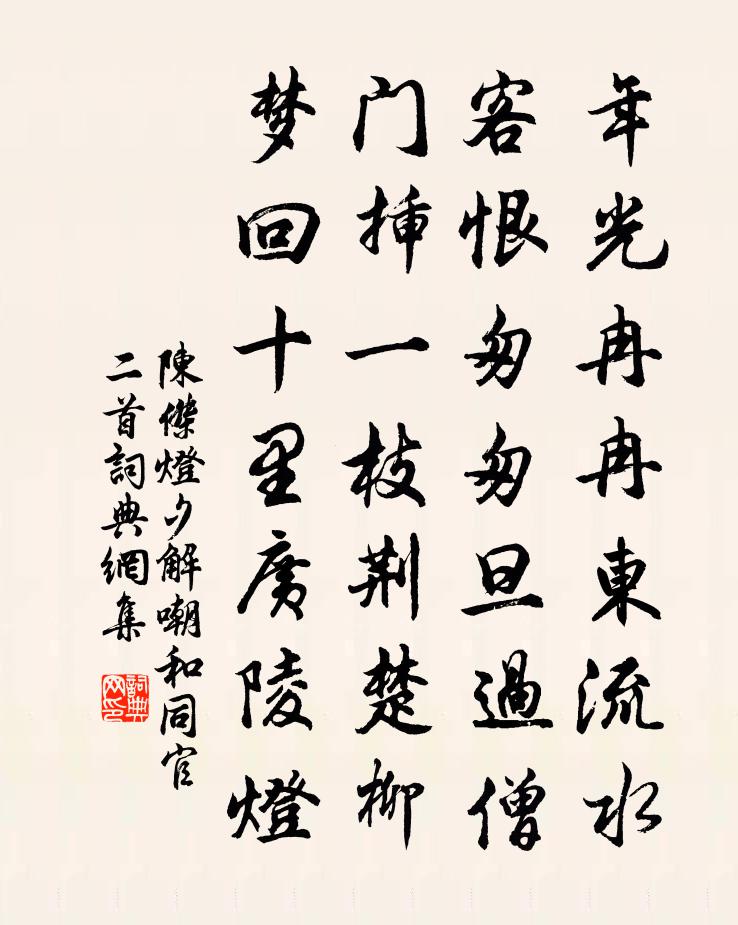 年光冉冉東流水
客恨匆匆旦過僧
门揷一枝荆楚柳
梦回十里廣陵燈
陳傑燈夕解嘲和同官
二首詞典網集
詞典
网印